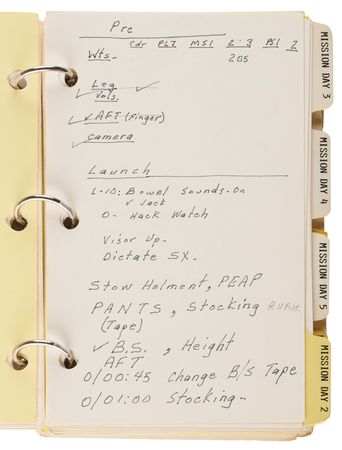 Pre
Cdr PLT MS1 2 3 PS1 2
Wts. 205
Leg
Vols.
✓ AFT (Finger)
Camera
Launch
L-10: Bowel Sounds-On
✓ Jack
0- Hack Watch
Visor Up-
Dictate SX-
Stow Helment, PEAP
PANTS, Stocking
(Tape)
✓ B.S., Height
AFT
0/00:45 Change B/S Tape
0/01:00 Stocking-
MISSION DAY 3
MISSION DAY 4
MISSION DAY 5
MISSION DAY 2